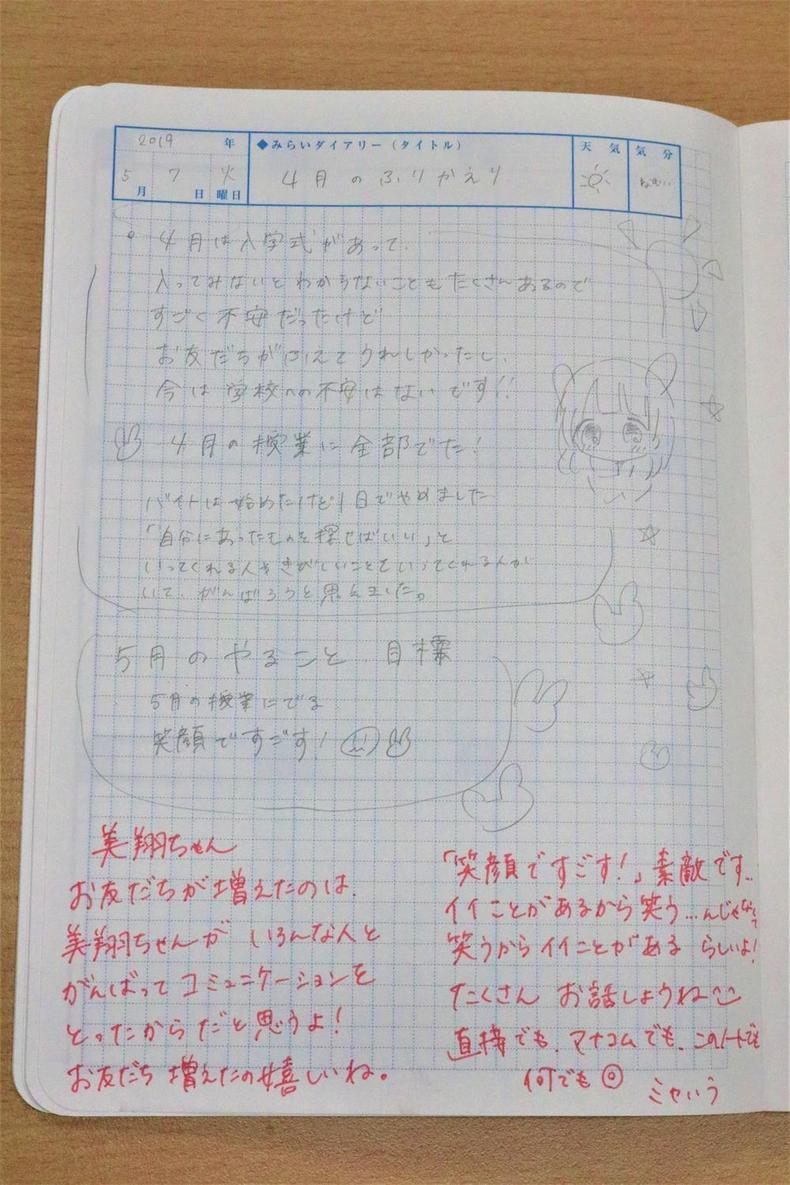 2019 年
5月 7日 火曜日
◆みらいダイアリー（タイトル）
4月のふりかえり
天気
気分
ねむい
4月は入学式があって、
入ってみないとわからないこともたくさんあるので
すごく不安だったけど
お友だちがふえてうれしかったし、
今は学校への不安はないです!!
4月の授業に全部でた！
バイトは始めたけど1日でやめました
「自分にあったものを探せばいい」と
いってくれる人やきびしいことをいってくれる人が
いて、がんばろうと思えました。
5月のやること 目標
5月の授業にでる
笑顔ですごす！
美翔ちゃん
お友だちが増えたのは、
美翔ちゃんが いろんな人と
がんばって コミュニケーションを
とったからだと思うよ！
お友だち 増えたの嬉しいね。
「笑顔ですごす！」素敵です..
イイことがあるから笑う…んじゃなくて
笑うからイイことがある らしいよ！
たくさん お話しようね
直接でも、マナコムでも、このノートでも
何でも◎
ミヤいう